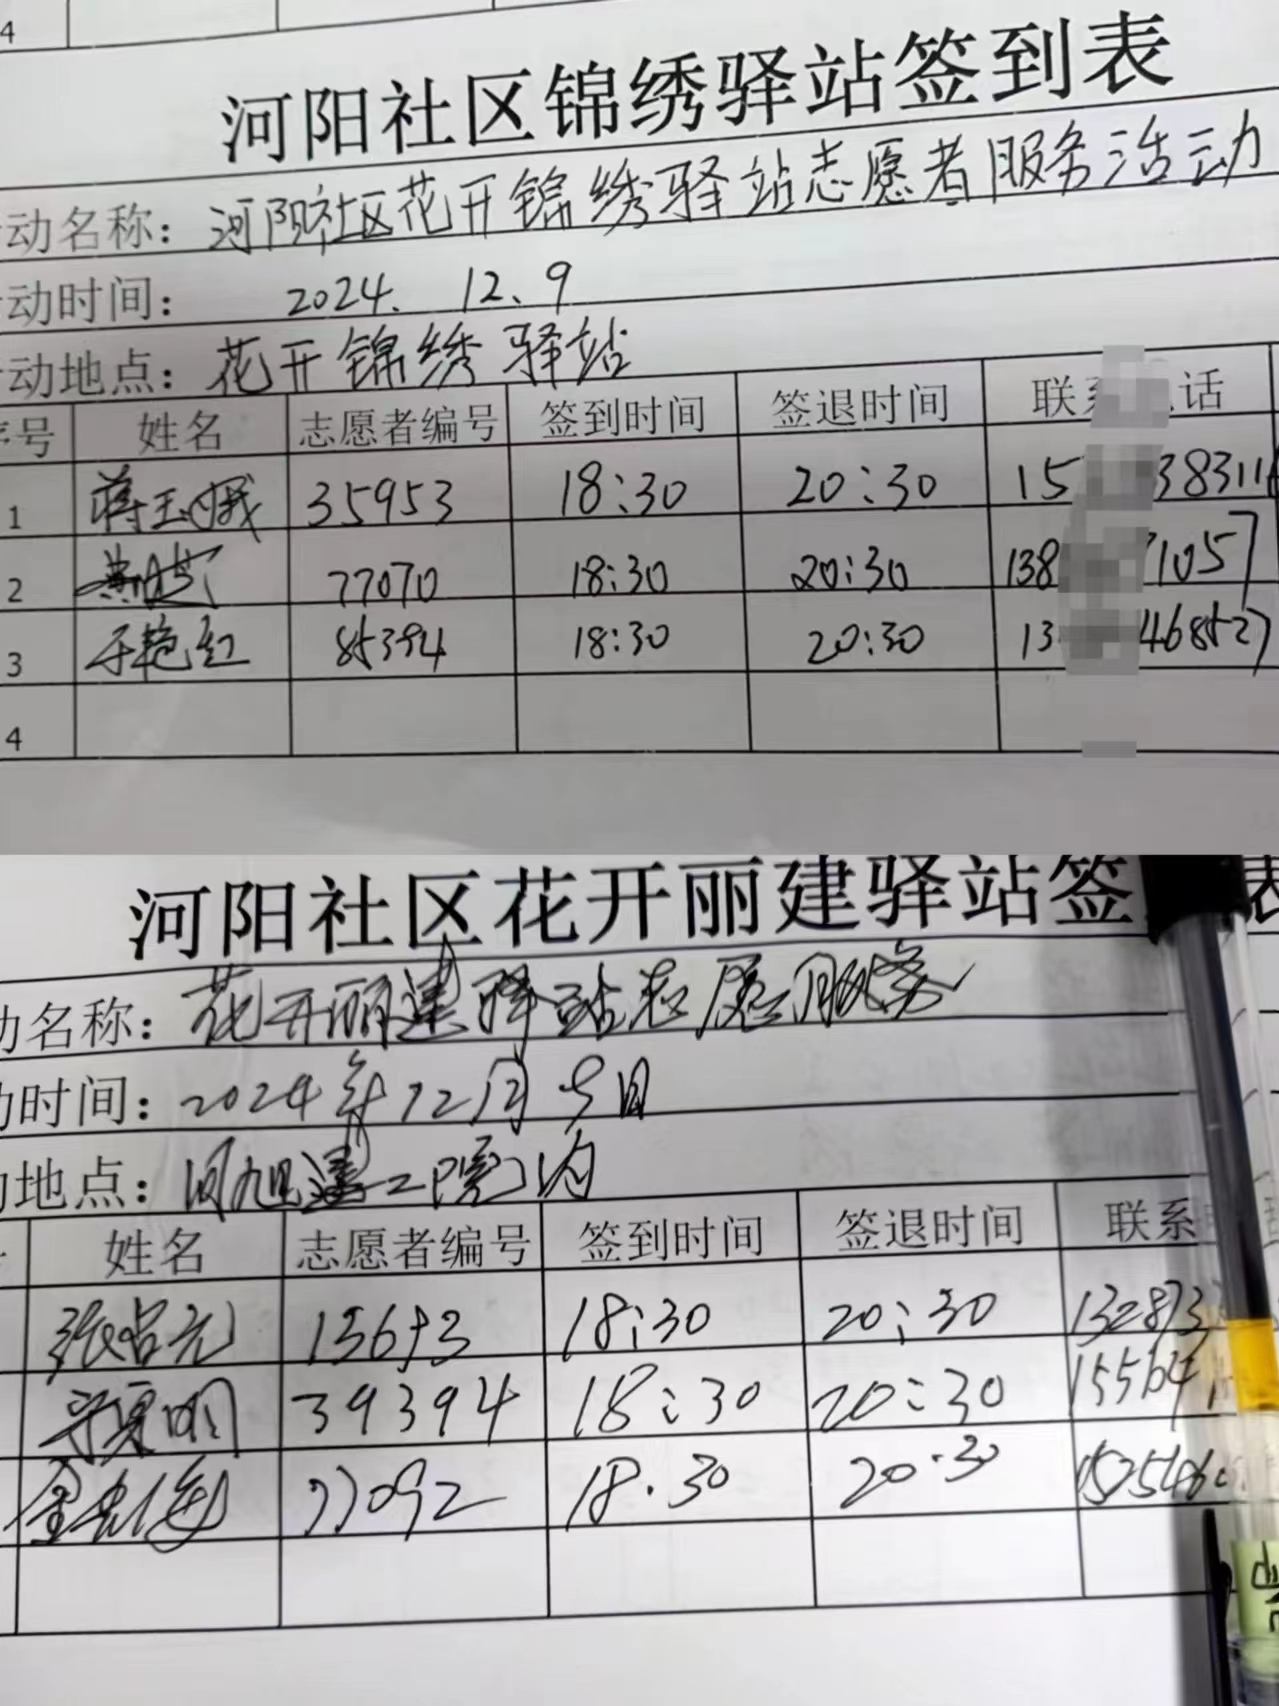 4
河阳社区锦绣驿站签到表
动名称：河阳社区花开锦绣驿站志愿者服务活动
动时间： 2024. 12、9
动地点：花开锦绣驿站
序号 姓名 志愿者编号 签到时间 签退时间 联系 话
1 蒋玉娥 35953 18:30 20:30 15 38311
2 77070 18:30 20:30 138 71057
3 于艳红 85394 18:30 20:30 13 468527
4
河阳社区花开丽建驿站签 表
动名称：花开丽建驿站志愿服务
动时间：2024年12月9日
动地点： 内
姓名 志愿者编号 签到时间 签退时间 联系
18:30 20:30 132873
39394 18:30 20:30 15564
77092 18.30 20.30